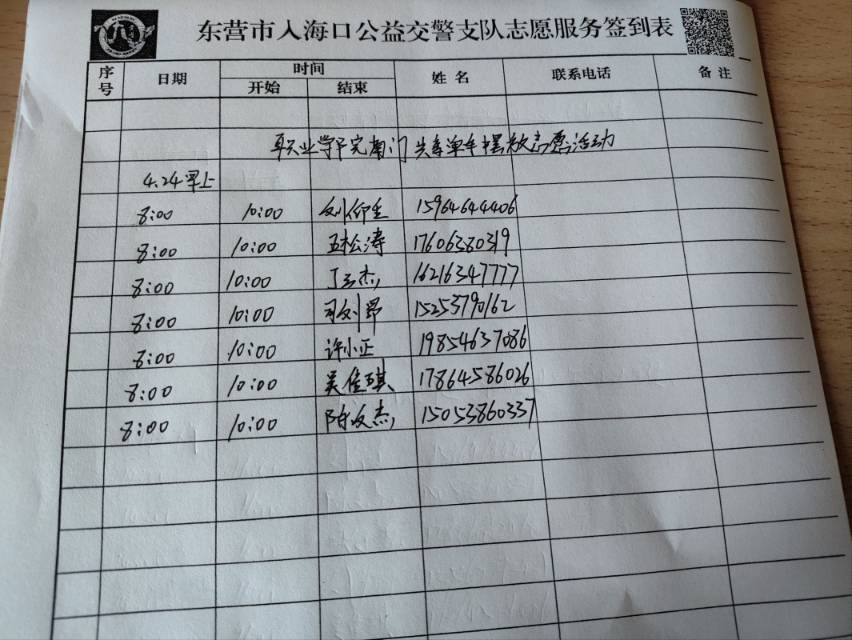 东营市入海口公益交警支队志愿服务签到表
序号 日期 时间 姓名 联系电话 备注
开始 结束
职业学院南门 共享单车摆放志愿活动
4.24早上
8:00 10:00 15964644406
8:00 10:00 王松涛 17606380319
8:00 10:00 丁玉杰 16216347777
8:00 10:00 15253790162
8:00 10:00 许小正 19854637086
8:00 10:00 吴佳琪 17864586026
8:00 10:00 陈友杰 15053860337